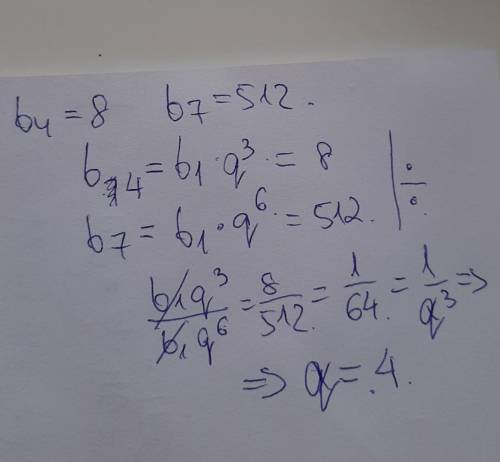 b₄ = 8 b₇ = 512.
b₄ = b₁ · q³ = 8
b₇ = b₁ · q⁶ = 512. | ÷
b₁q³/b₁q⁶ = 8/512 = 1/64 = 1/q³ =>
=> q = 4.